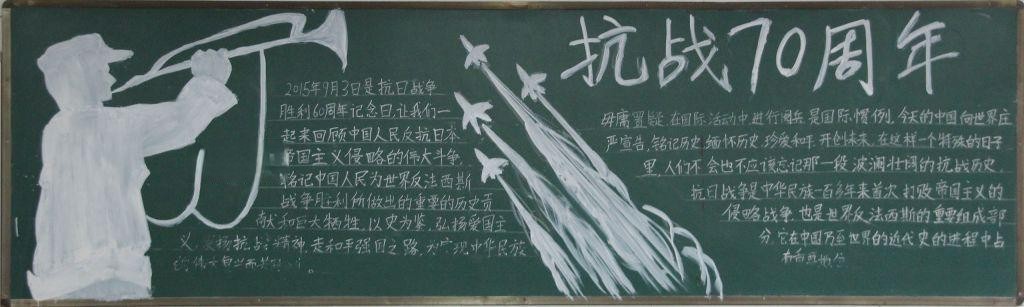 抗战70周年
2015年9月3日是抗日战争
胜利60周年纪念日,让我们一
起来回顾中国人民反抗日本
帝国主义侵略的伟大斗争,
铭记中国人民为世界反法西斯
战争胜利所做出的重要的历史贡
献和巨大牺牲,以史为鉴,弘扬爱国主
义,发扬抗战精神,走和平强国之路,为实现中华民族
的伟大复兴而
毋庸置疑,在国际活动中进行阅兵是国际惯例,今天的中国向世界庄
严宣告,铭记历史,缅怀历史,珍爱和平,开创未来,在这样一个特殊的日子
里,人们不会也不应该忘记那一段波澜壮阔的抗战历史,
抗日战争是中华民族一百多年来首次打败帝国主义的
侵略战争,也是世界反法西斯的重要组成部
分,它在中国乃至世界的近代史的进程中占
有